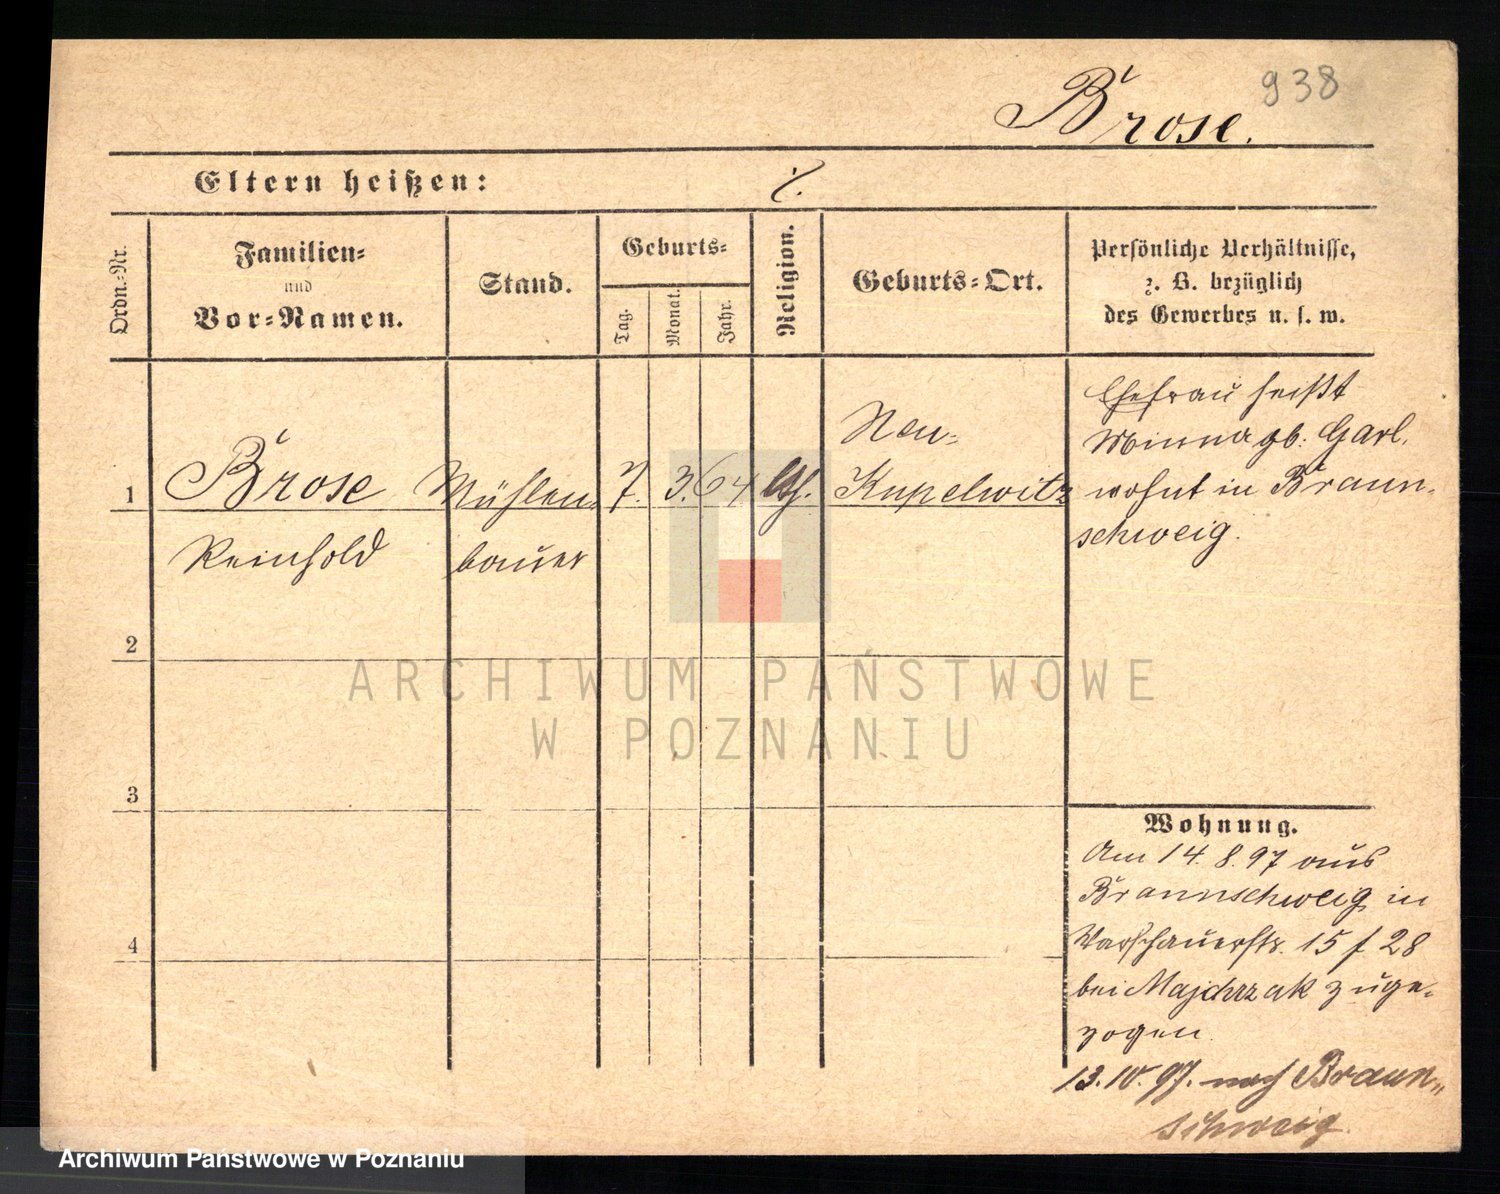 938
Brose.
Eltern heißen: ./.
Ordn.-Nr.
Familien-
und
Vor-Namen.
Stand.
Geburts-
Tag.
Monat.
Jahr.
Religion.
Geburts-Ort.
Persönliche Verhältnisse,
z. B. bezüglich
des Gewerbes u. s. w.
1
Brose
Reinhold
Mühlen-
bauer
7. 3. 64
Neu-
Kupelwitz
Ehefrau heißt
Minna gb. Garl.
wohnt in Braun-
schweig.
2
3
4
Wohnung.
Am 14.8.97 aus
Braunschweig in
Warschauerstr. 15 f 28
bei Majchrzak zuge-
zogen.
13.10.97. nach Braun-
schweig
ARCHIWUM PAŃSTWOWE
W POZNANIU
Archiwum Państwowe w Poznaniu